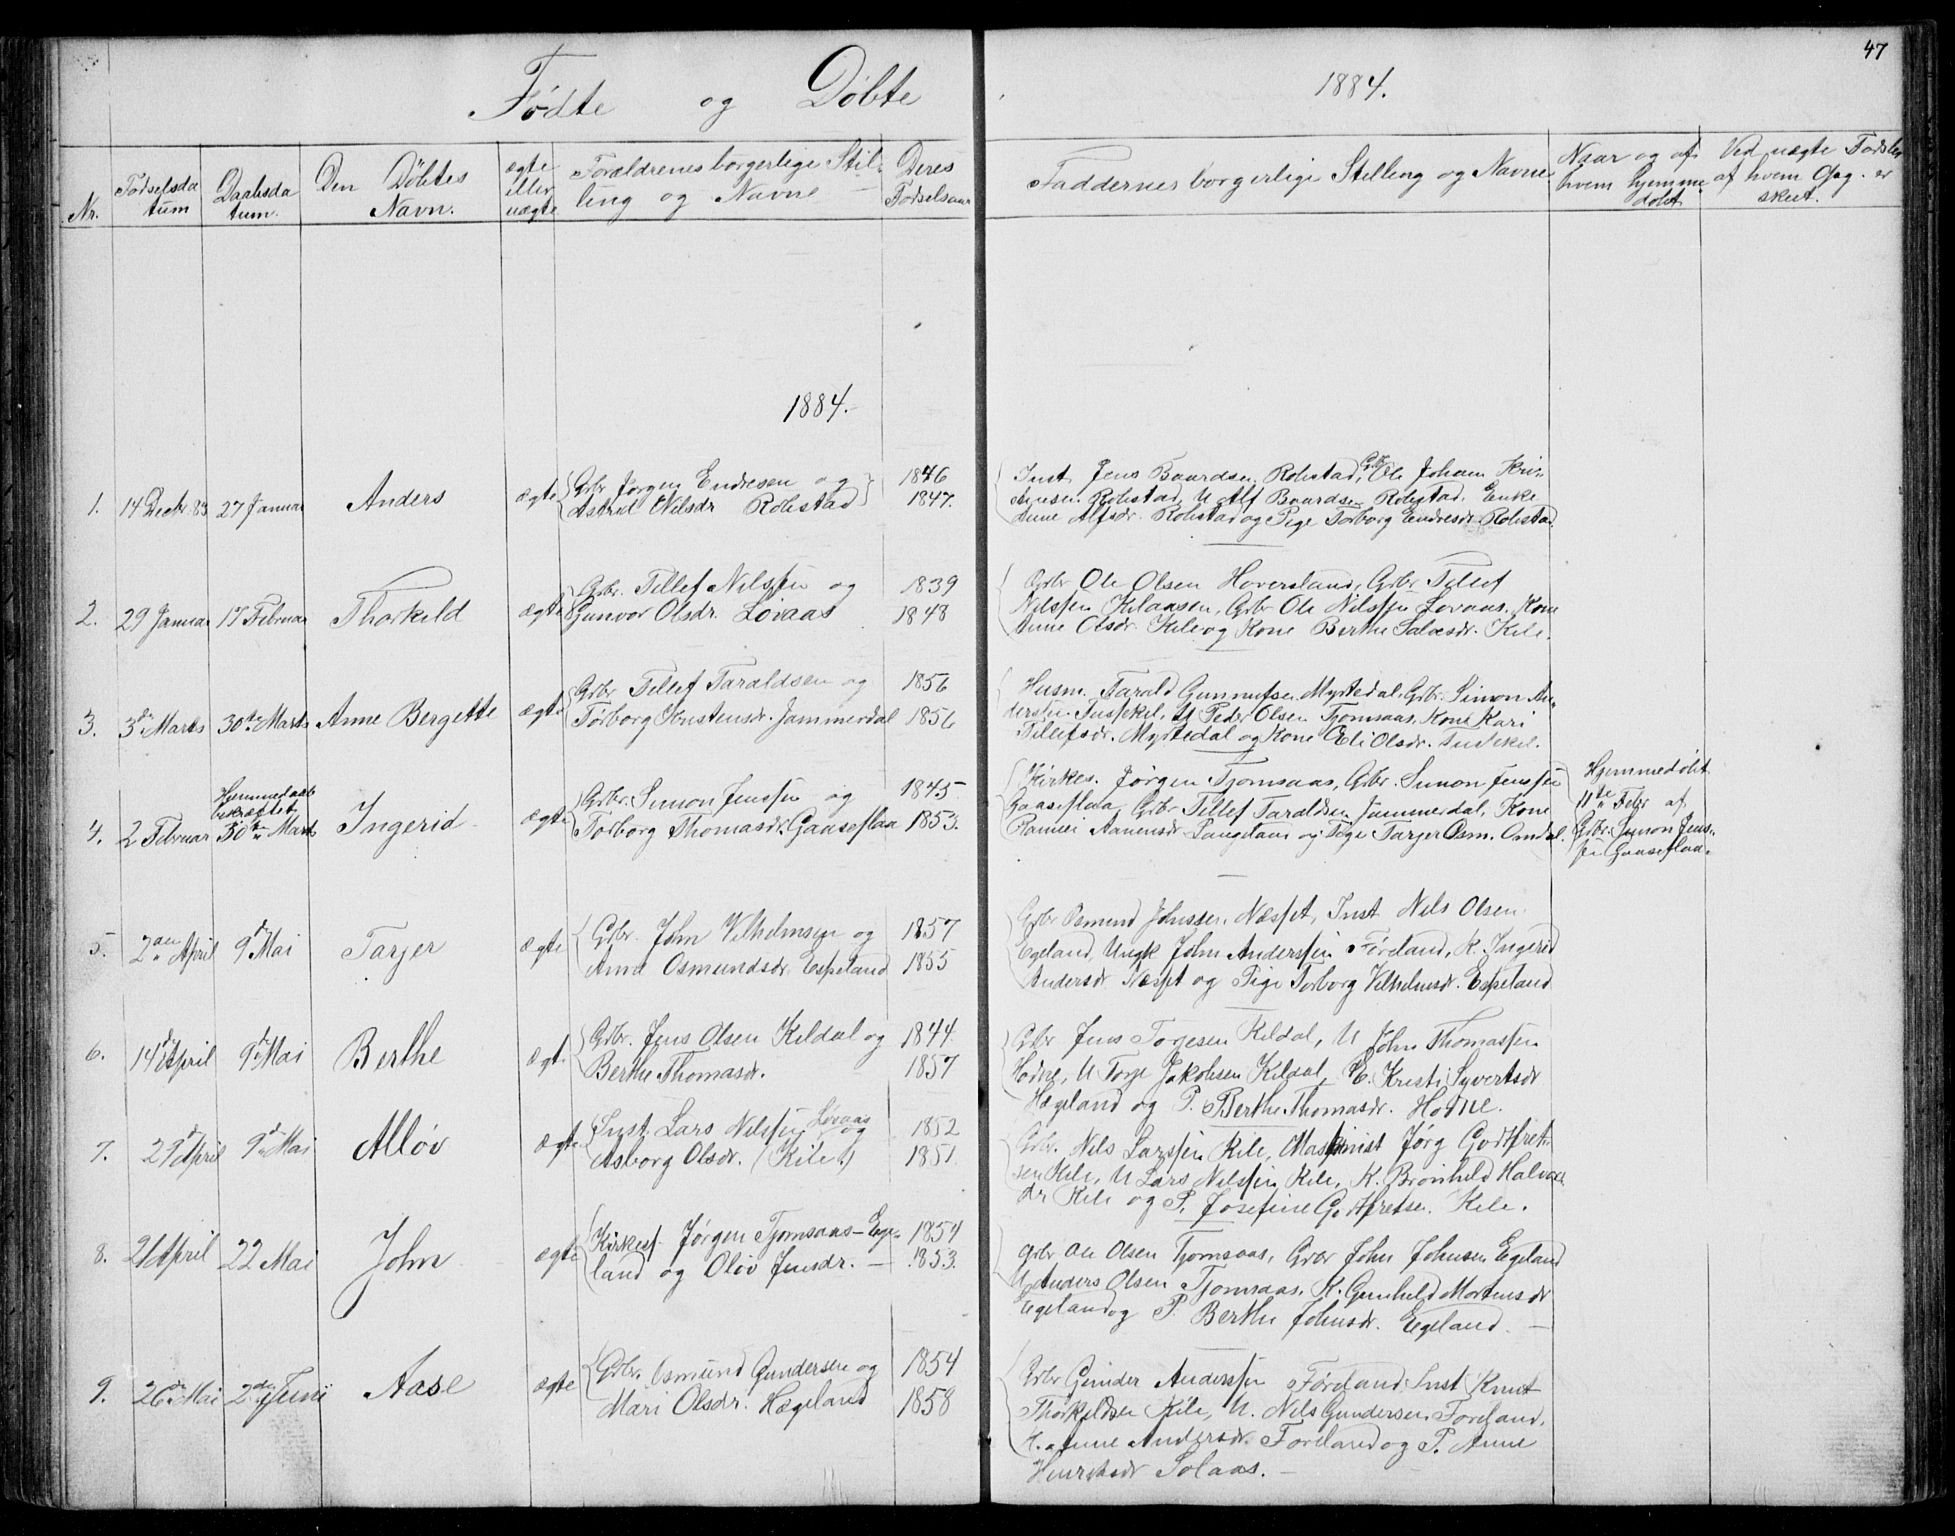 47
Fødte og Døbte
1884.
Nr.
Fødselsda
tum
Daabsda
tum.
Den Döbtes
Navn.
ægte
eller
uægte
Forældrenes borgerlige Stil-
ling og Navne
Deres
Fødselsaar
Faddernes borgerlige Stilling og Navne
Naar og af
hvem hjemme
døbt
Ved uægte Fødsler
af hvem Opg. er
skeet.
1884.
1. 14 Decbr. 83 27 Januar Anders ægte
Grbr. Jörgen Endresen og 1846
Astrid Nilsdr Robstad 1847.
Inst. Jens Baardsen Robstad, Grbr. Ole Johan Kri-
stensen Robstad, U Alf Baardsen Robstad, Enke
Anne Alfsdr. Robstad og Pige Torborg Endresdr. Robstad
2. 29 Januar 17 Februar Thorkild ægte
Grbr. Tellef Nilssen og 1839
Gunvor Olsdr. Lovaas 1848
Grbr Ole Olsen Hoversland, Grbr Tellef
Nilssen Kilaasen, Grbr Ole Nilssen Lovaas, Kone
Anne Olsdr. Kile og Kone Berthe Salvesdr. Kile.
3. 3die Marts 30te Marts Anne Bergette ægte
Grbr Tellef Taraldsen og 1856
Torborg Kristensdr. Jammerdal 1856
Husm. Tarald Gunnufsen Myrtedal, Grbr. Simon An-
derssen Tusskil, U Peder Olsen Tjomsaas, Kone Kari
Tellefsdr. Myrtedal og Kone Eli Olsdr. Tusskil.
4. 2 Februar Hjemmedaab
bekræftet
30te Marts Ingerid ægte
Grbr. Simon Jenssen og 1845
Torborg Thomasdr. Gaaseflaa 1853.
Kirkes. Jørgen Tjomsaas, Grbr. Simon Jenssen
Gaaseflaa, Grbr Tellef Taraldsen Jammerdal, Kone
Aanensdr og Pige Tarjer Osm. Omdal.
Hjemmedöbt
11te Febr af
Grbr. Simon Jens-
sen Gaaseflaa.
5. 2den April 9de Mai Tarjer ægte
Grbr. John Vilhelmsen og 1857
Anne Osmundsdr. Espeland 1855
Grbr Osmund Johnssen Næsset, Inst Nils Olsen
Egeland, Ungk John Anderssen Føreland, K. Ingerid
Andersdr Næsset og Pige Torborg Vilhelmsdr. Espeland
6. 14de April 9de Mai Berthe ægte
Grbr. Jens Olsen Kildal og 1844.
Berthe Thomasdr. 1857
Grbr Jens Torjesen Kildal, U John Thomassen
Hodne, U Torje Jakobsen Kildal, E. Kristi Syvertsdr
Hægeland og P. Berthe Thomasdr. Hodne.
7. 29de April 9de Mai Alløv ægte
Inst. Lars Nilssen Lovaas og 1852
Asborg Olsdr. (Kile) 1851.
Grbr. Nils Larssen Kile, Maskinist Jørg Godtfret-
sen Kile, U Lars Nilssen Kile, K. Brønhild Halvors
dr Kile og P. Josefine Godtfretsen Kile.
8. 21 April 22 Mai John ægte
Kirkes. Jørgen Tjomsaas-Ege- 1854
land og Oløv Jensdr. — 1853.
Grbr Ole Olsen Tjomsaas, Grbr John Johnsen Egeland
U Anders Olsen Tjomsaas, K. Gunhild Mortensdr
Egeland og P. Berthe Johnsdr. Egeland. —
9. 26de Mai 2den Juni Aase ægte
Grbr. Osmund Gundersen og 1854
Mari Olsdr. Hægeland 1858
Grbr Gunder Anderssen Føreland, Inst Knut
Thorkildsen Kile, U. Nils Gundersen Føreland,
K. Anne Andersdr Føreland og P. Anne
Solaas. —